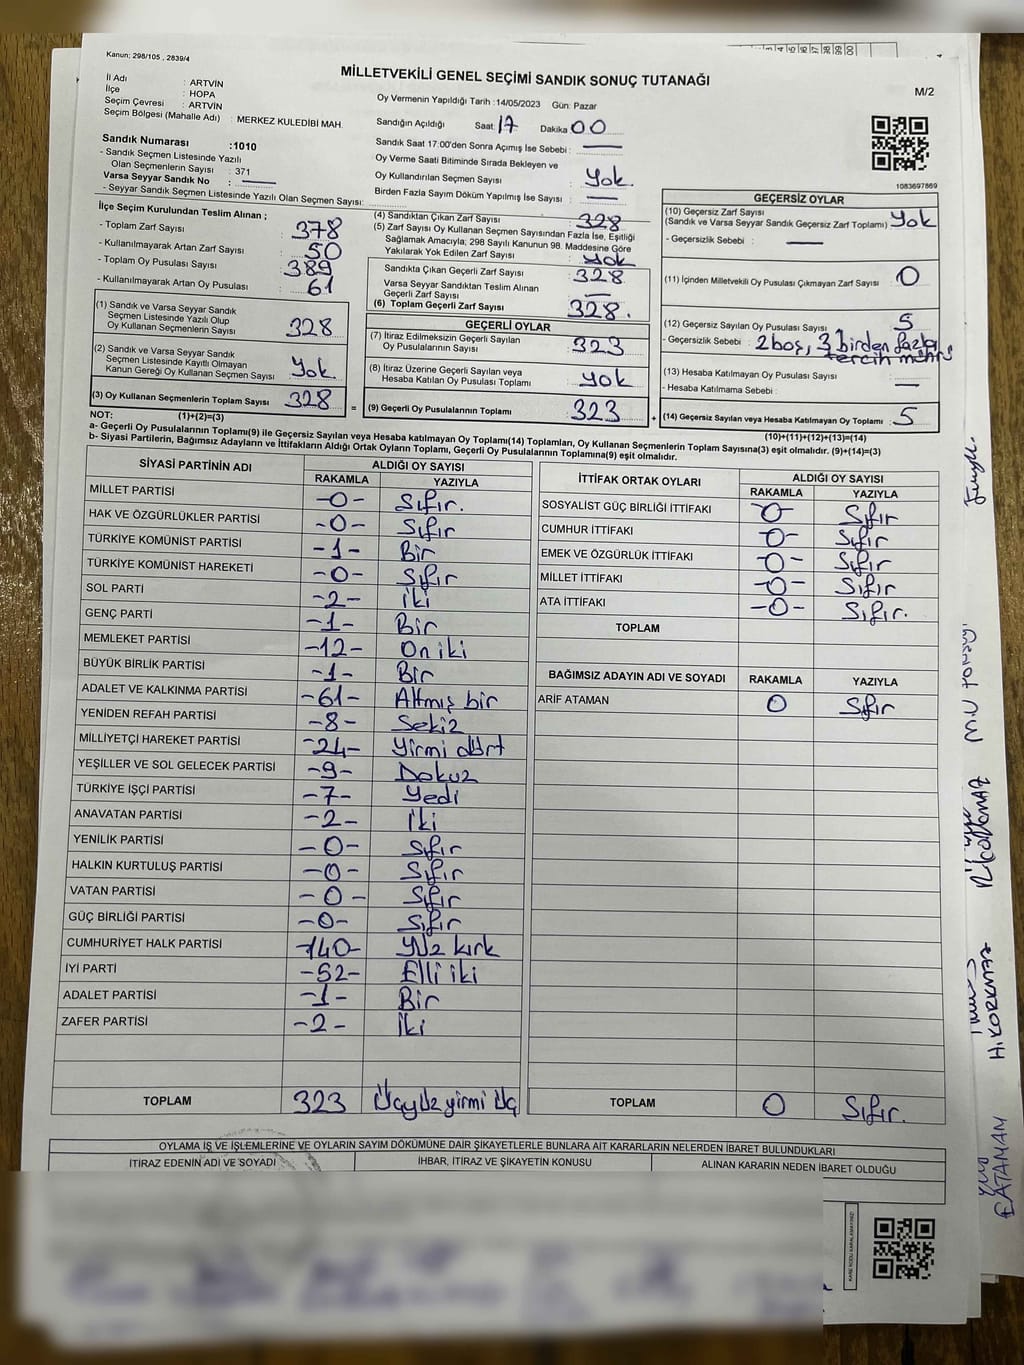 Kanun; 298/105 , 2839/4
MİLLETVEKİLİ GENEL SEÇİMİ SANDIK SONUÇ TUTANAĞI
M/2
İl Adı : ARTVİN
İlçe : HOPA
Seçim Çevresi : ARTVİN
Seçim Bölgesi (Mahalle Adı) : MERKEZ KULEDİBİ MAH.
Oy Vermenin Yapıldığı Tarih :14/05/2023 Gün: Pazar
Sandığın Açıldığı Saat 17 Dakika 00
Sandık Saat 17:00'den Sonra Açılmış İse Sebebi :
Oy Verme Saati Bitiminde Sırada Bekleyen ve
Oy Kullandırılan Seçmen Sayısı : Yok.
Birden Fazla Sayım Döküm Yapılmış İse Sayısı :
Sandık Numarası :1010
- Sandık Seçmen Listesinde Yazılı
Olan Seçmenlerin Sayısı : 371
Varsa Seyyar Sandık No :
- Seyyar Sandık Seçmen Listesinde Yazılı Olan Seçmen Sayısı:
1083697869
İlçe Seçim Kurulundan Teslim Alınan ;
- Toplam Zarf Sayısı : 378
- Kullanılmayarak Artan Zarf Sayısı : 50
- Toplam Oy Pusulası Sayısı : 389
- Kullanılmayarak Artan Oy Pusulası : 61
(1) Sandık ve Varsa Seyyar Sandık
Seçmen Listesinde Yazılı Olup
Oy Kullanan Seçmenlerin Sayısı 328
(2) Sandık ve Varsa Seyyar Sandık
Seçmen Listesinde Kayıtlı Olmayan
Kanun Gereği Oy Kullanan Seçmen Sayısı Yok
(3) Oy Kullanan Seçmenlerin Toplam Sayısı 328
(1)+(2)=(3)
(4) Sandıktan Çıkan Zarf Sayısı : 328
(5) Zarf Sayısı Oy Kullanan Seçmen Sayısından Fazla İse, Eşitliği
Sağlamak Amacıyla; 298 Sayılı Kanunun 98. Maddesine Göre
Yakılarak Yok Edilen Zarf Sayısı : Yok
Sandıkta Çıkan Geçerli Zarf Sayısı : 328
Varsa Seyyar Sandıktan Teslim Alınan
Geçerli Zarf Sayısı :
(6) Toplam Geçerli Zarf Sayısı : 328.
GEÇERLİ OYLAR
(7) İtiraz Edilmeksizin Geçerli Sayılan
Oy Pusulalarının Sayısı : 323
(8) İtiraz Üzerine Geçerli Sayılan veya
Hesaba Katılan Oy Pusulası Toplamı : yok
= (9) Geçerli Oy Pusulalarının Toplamı : 323 +
GEÇERSİZ OYLAR
(10) Geçersiz Zarf Sayısı
(Sandık ve Varsa Seyyar Sandık Geçersiz Zarf Toplamı) : Yok
- Geçersizlik Sebebi :
(11) İçinden Milletvekili Oy Pusulası Çıkmayan Zarf Sayısı : 0
(12) Geçersiz Sayılan Oy Pusulası Sayısı : 5
- Geçersizlik Sebebi : 2 boş, 3 birden fazla
tercih mührü
(13) Hesaba Katılmayan Oy Pusulası Sayısı :
- Hesaba Katılmama Sebebi :
(14) Geçersiz Sayılan veya Hesaba Katılmayan Oy Toplamı : 5
(10)+(11)+(12)+(13)=(14)
NOT:
a- Geçerli Oy Pusulalarının Toplamı(9) ile Geçersiz Sayılan veya Hesaba katılmayan Oy Toplamı(14) Toplamları, Oy Kullanan Seçmenlerin Toplam Sayısına(3) eşit olmalıdır. (9)+(14)=(3)
b- Siyasi Partilerin, Bağımsız Adayların ve İttifakların Aldığı Ortak Oyların Toplamı, Geçerli Oy Pusulalarının Toplamına(9) eşit olmalıdır.
SİYASİ PARTİNİN ADI ALDIĞI OY SAYISI
RAKAMLA YAZIYLA
MİLLET PARTİSİ -0- Sıfır.
HAK VE ÖZGÜRLÜKLER PARTİSİ -0- Sıfır
TÜRKİYE KOMÜNİST PARTİSİ -1- Bir
TÜRKİYE KOMÜNİST HAREKETİ -0- Sıfır
SOL PARTİ -2- iki
GENÇ PARTİ -1- Bir
MEMLEKET PARTİSİ -12- On iki
BÜYÜK BİRLİK PARTİSİ -1- Bir
ADALET VE KALKINMA PARTİSİ -61- Altmış bir
YENİDEN REFAH PARTİSİ -8- Sekiz
MİLLİYETÇİ HAREKET PARTİSİ -24- Yirmi dört
YEŞİLLER VE SOL GELECEK PARTİSİ -9- Dokuz
TÜRKİYE İŞÇİ PARTİSİ -7- Yedi
ANAVATAN PARTİSİ -2- İki
YENİLİK PARTİSİ -0- Sıfır
HALKIN KURTULUŞ PARTİSİ -0- Sıfır
VATAN PARTİSİ -0- Sıfır
GÜÇ BİRLİĞİ PARTİSİ -0- Sıfır
CUMHURİYET HALK PARTİSİ -140- Yüz kırk
İYİ PARTİ -52- Elli iki
ADALET PARTİSİ -1- Bir
ZAFER PARTİSİ -2- İki
TOPLAM 323 Üçyüz yirmi üç
İTTİFAK ORTAK OYLARI ALDIĞI OY SAYISI
RAKAMLA YAZIYLA
SOSYALİST GÜÇ BİRLİĞİ İTTİFAKI -0- Sıfır
CUMHUR İTTİFAKI -0- Sıfır
EMEK VE ÖZGÜRLÜK İTTİFAKI -0- Sıfır
MİLLET İTTİFAKI -0- Sıfır
ATA İTTİFAKI -0- Sıfır.
TOPLAM
BAĞIMSIZ ADAYIN ADI VE SOYADI RAKAMLA YAZIYLA
ARİF ATAMAN 0 Sıfır
TOPLAM 0 Sıfır.
OYLAMA İŞ VE İŞLEMLERİNE VE OYLARIN SAYIM DÖKÜMÜNE DAİR ŞİKAYETLERLE BUNLARA AİT KARARLARIN NELERDEN İBARET BULUNDUKLARI
İTİRAZ EDENİN ADI VE SOYADI İHBAR, İTİRAZ VE ŞİKAYETİN KONUSU ALINAN KARARIN NEDEN İBARET OLDUĞU
KARE KODU KARALAMAYINIZ!
H. KORKMAZ
E.ATAMAN